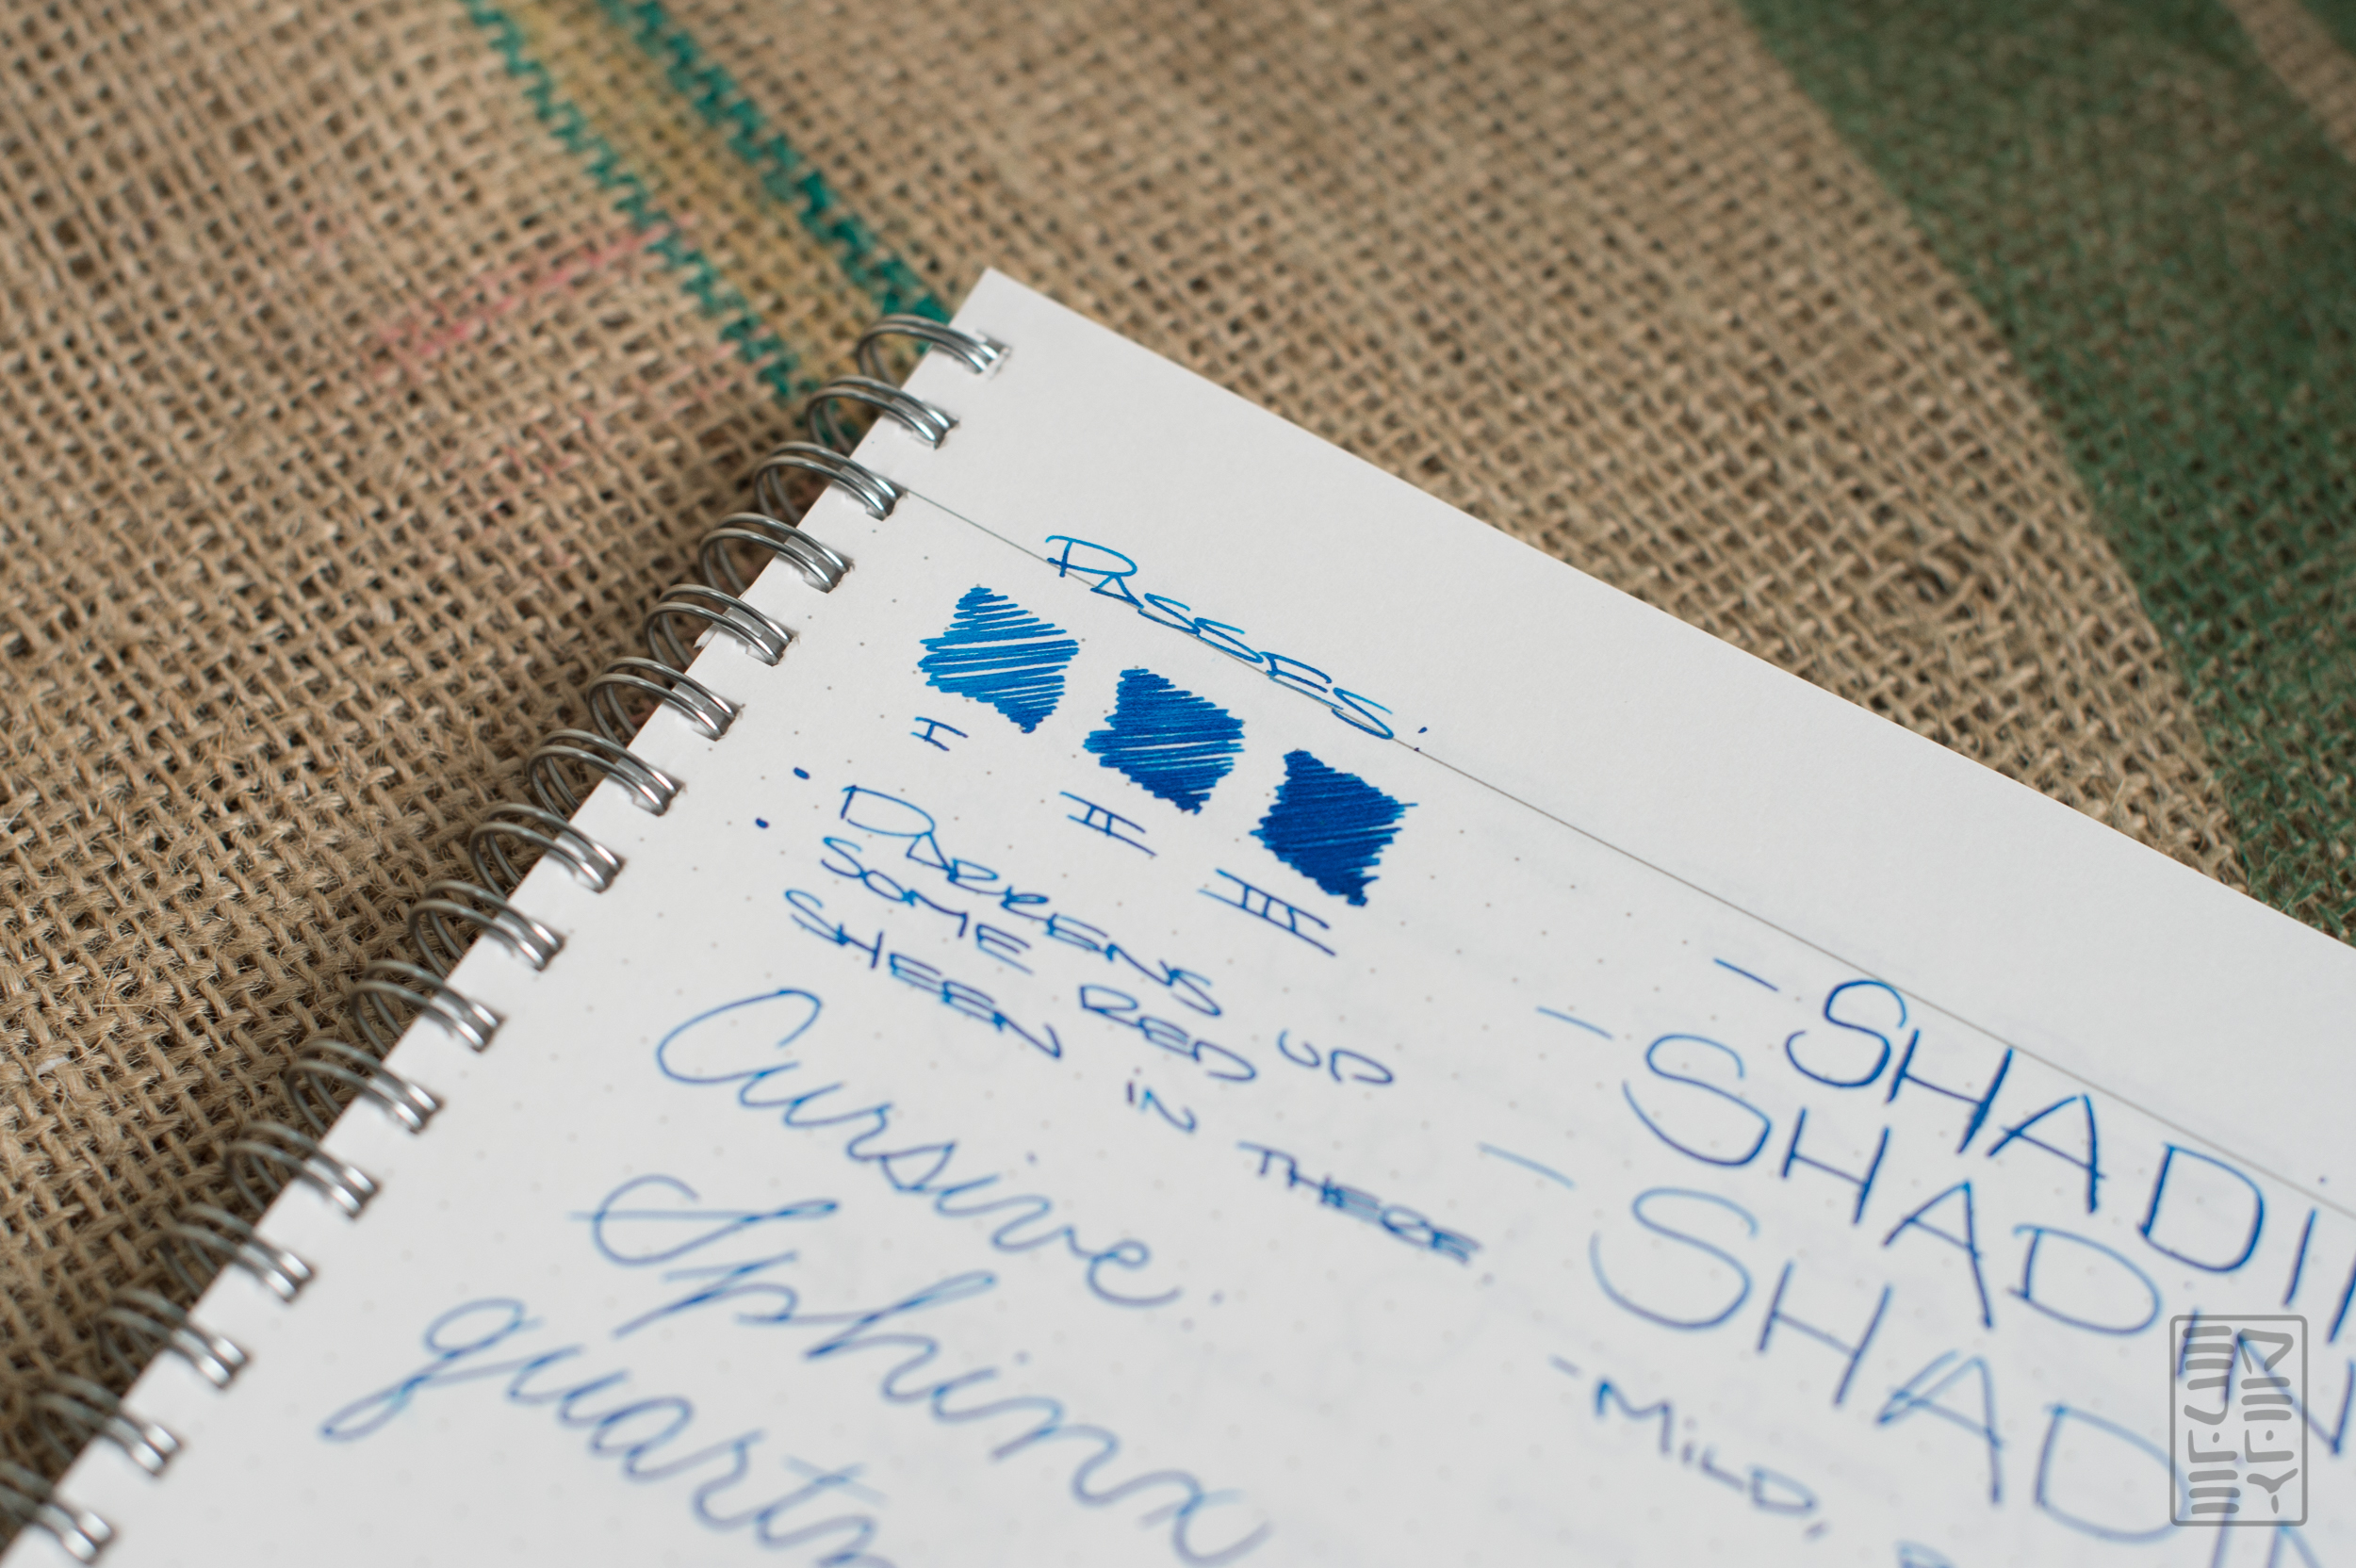 PASSES:
I II III
• DARKENS UP
• SOME RED
SHEEN IN THERE.
Cursive:
Sphinx
quartz
- SHADI
- SHADIN
- SHADIN
- MILD,